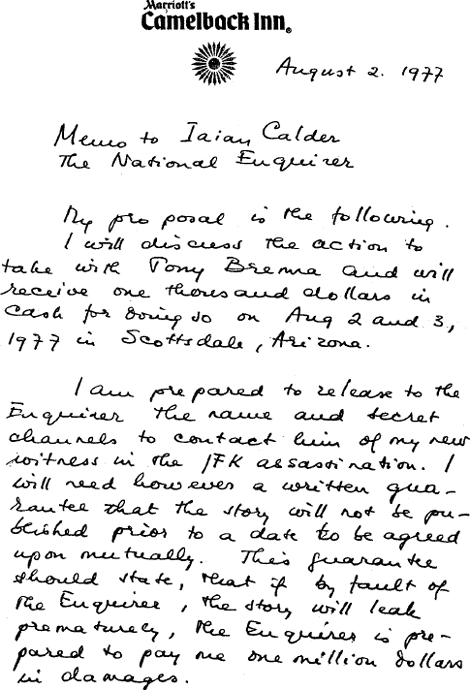 Marriott's
Camelback Inn.
August 2. 1977
Memo to Iaian Calder
The National Enquirer
My proposal is the following.
I will discuss the action to
take with Tony Brenna and will
receive one thousand dollars in
cash for doing so on Aug 2 and 3,
1977 in Scottsdale, Arizona.
I am prepared to release to the
Enquirer the name and secret
channels to contact him of my new
witness in the JFK assassination. I
will need however a written gua-
rantee that the story will not be pu-
blished prior to a date to be agreed
upon mutually. This guarantee
should state, that if by fault of
the Enquirer, the story will leak
prematurely, the Enquirer is pre-
pared to pay me one million dollars
in damages.